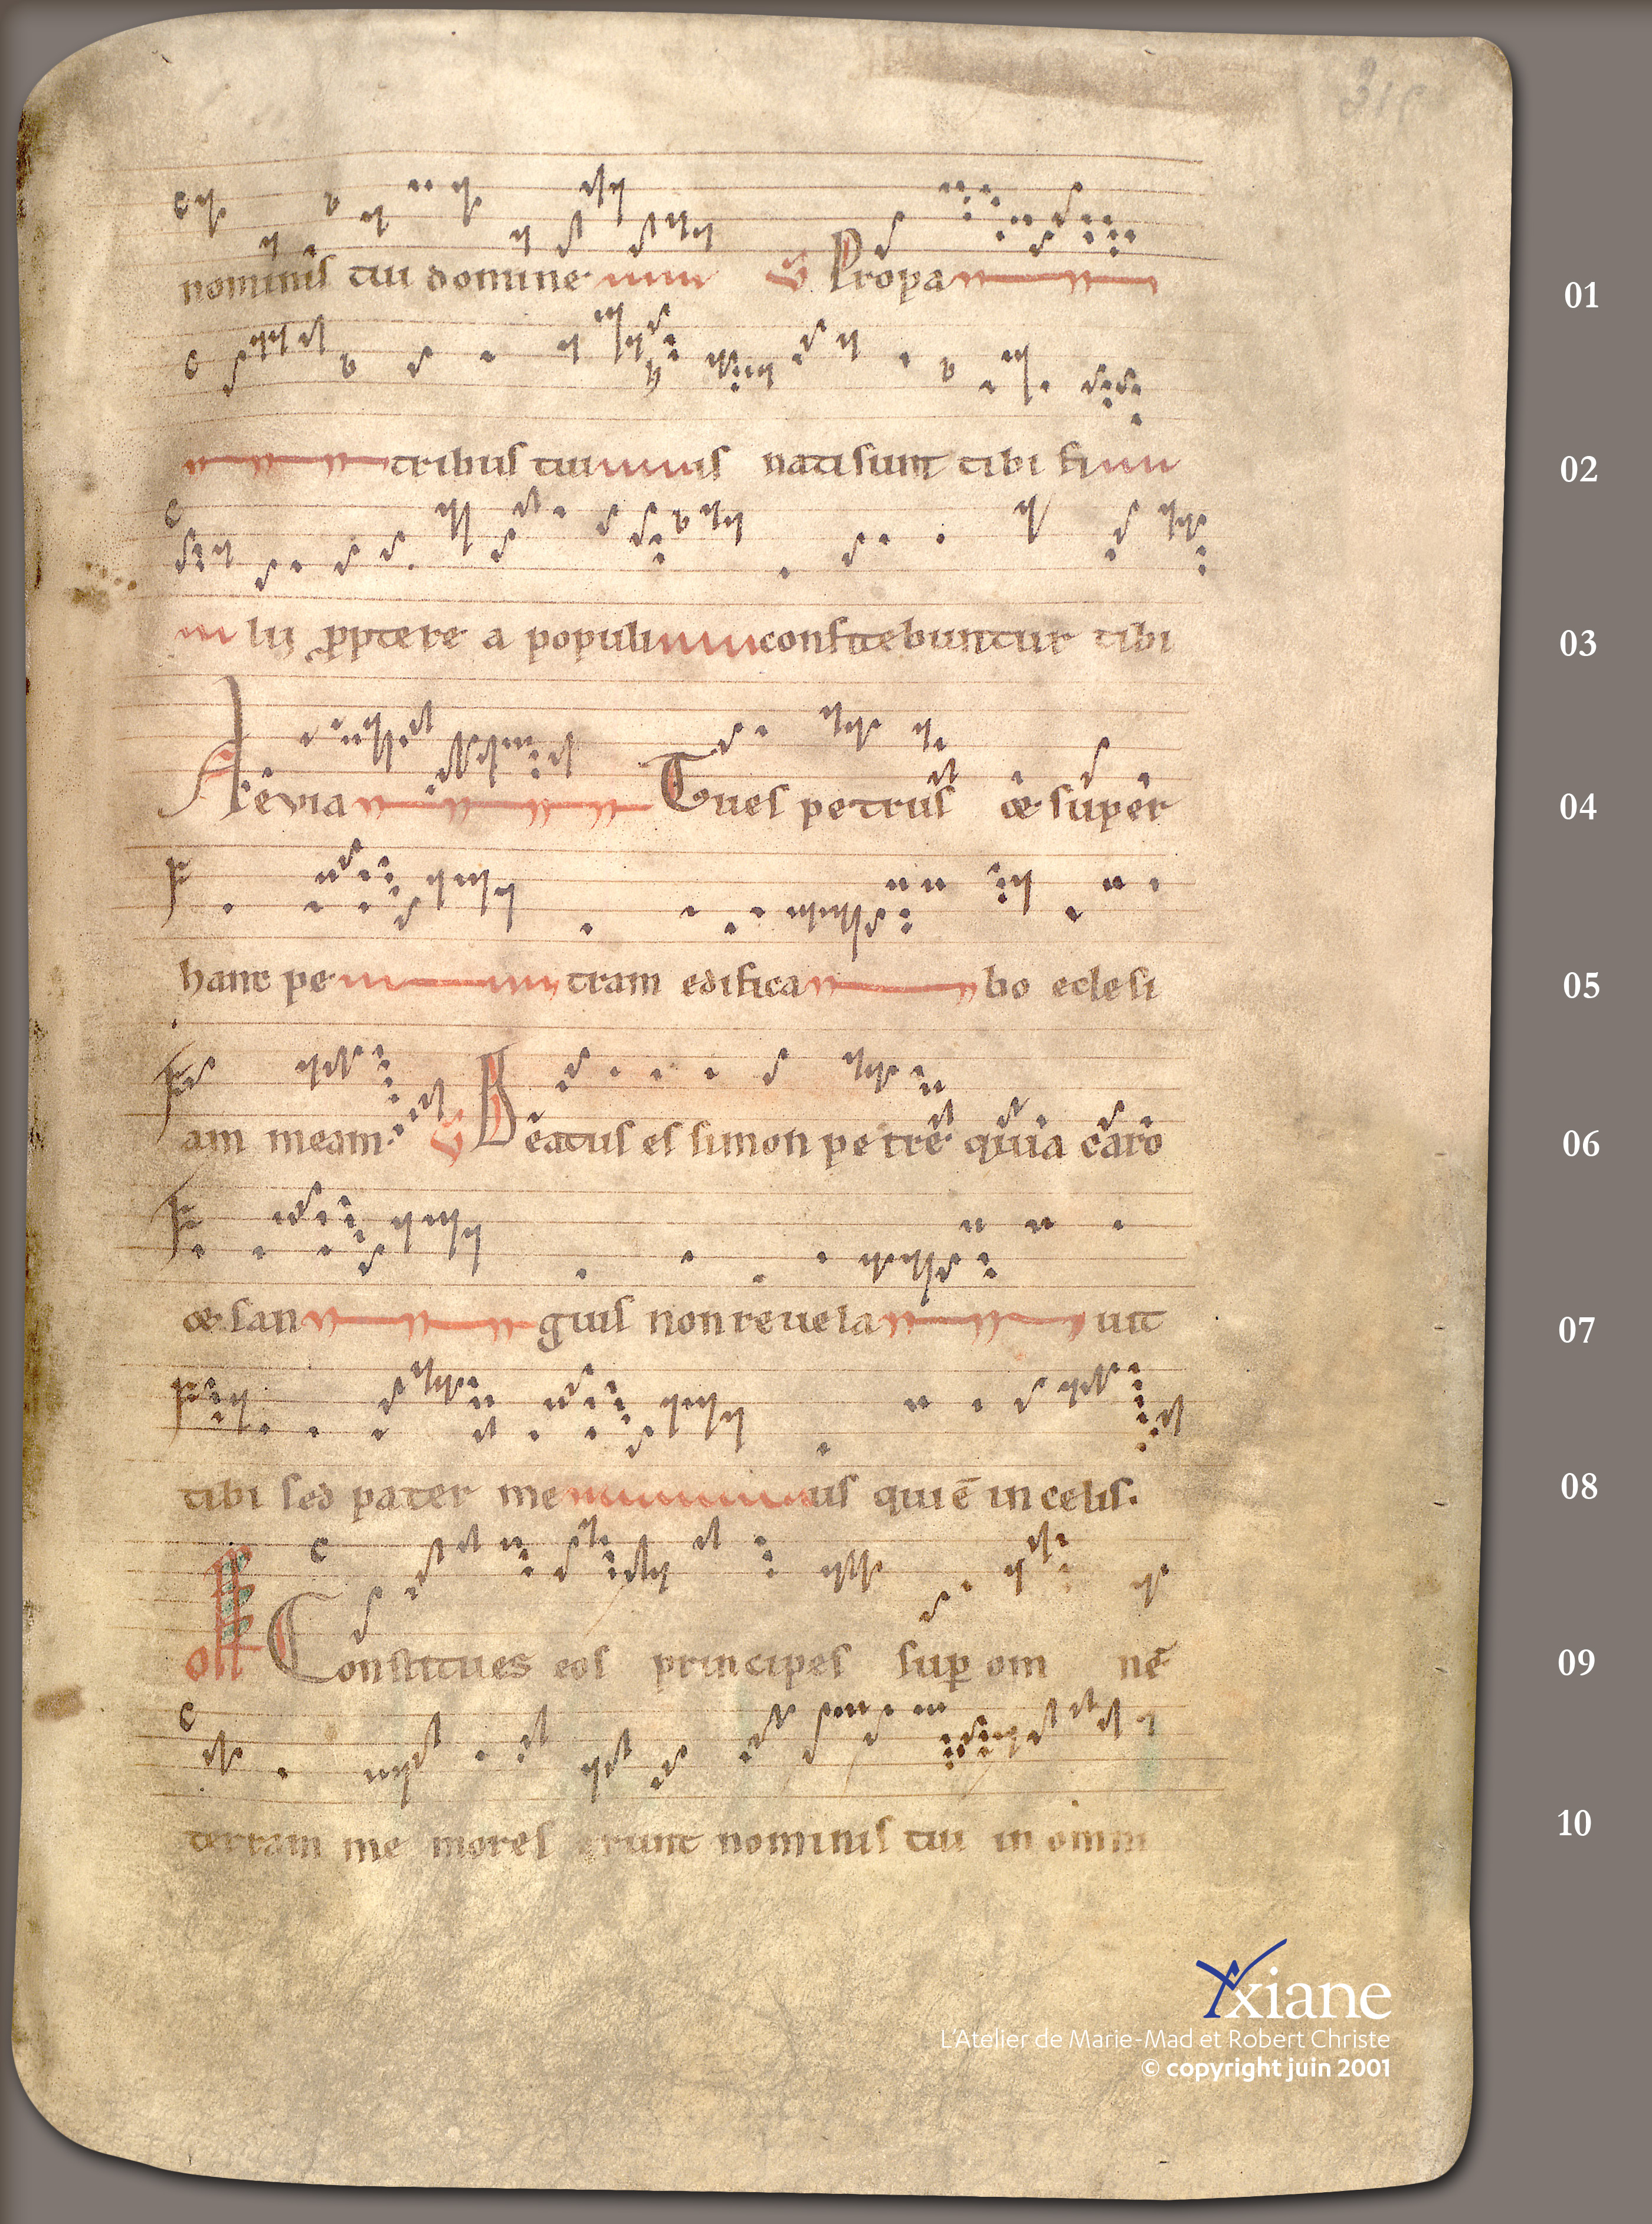 nominis tui domine S Propa 01
tribus tuis nati sunt tibi fi 02
lii proptere a populi confitebuntur tibi 03
Aỻevia Tu es petrus & super 04
hanc petram edificabo eclesi 05
am meam. S Beatus es simon petre quia caro 06
& sanguis non revelauit 07
tibi sed pater meus qui ē in celis. 08
off Constitues eos principes sup om nē 09
terram me mores erunt nominis tui in omni 10
Yxiane
L'Atelier de Marie-Mad et Robert Christe
© copyright juin 2001